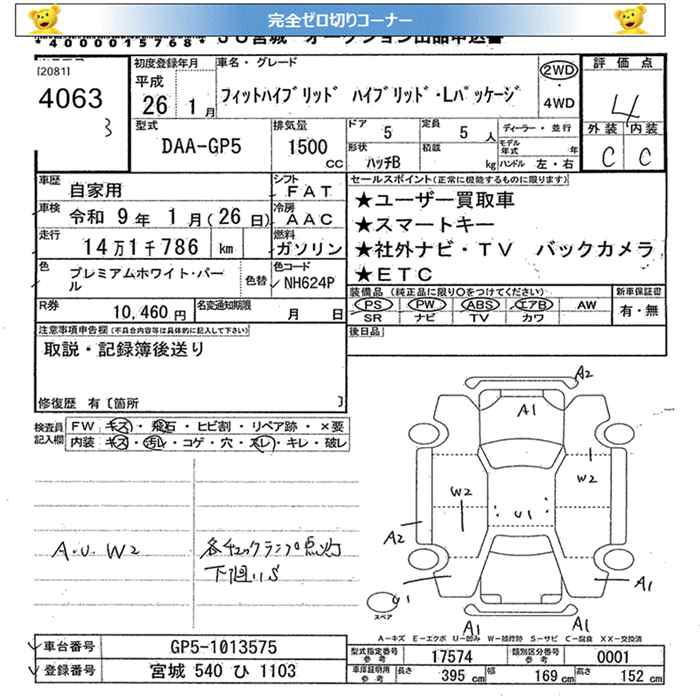 完全ゼロ切りコーナー
*4000015768* JU宮城 オークション出品申込書
[2081]
4063
3
初度登録年月
平成
26 1月
車名・グレード
フィットハイブリッド ハイブリッド・Lパッケージ
2WD
・
4WD
評価点
4
外装 内装
C C
型式
DAA-GP5
排気量
1500
CC
ドア 5
定員 5 人
形状 ハッチB
積載 kg
ディーラー・並行
モデル年式 年
ハンドル 左・右
車歴 自家用
シフト FAT
車検 令和 9年 1月(26日)
冷房 AAC
走行 14万1千786 km
燃料 ガソリン
色 プレミアムホワイト・パール
色替
色コード NH624P
R券 10,460円
名変通知期限 月 日
セールスポイント(正常に機能するものに限ります)
★ユーザー買取車
★スマートキー
★社外ナビ・TV バックカメラ
★ETC
装備品(純正品に限り○をつけてください)
新車保証書
PS PW ABS エアB AW
有・無
SR ナビ TV カワ
後日品
注意事項申告欄(不具合内容等は具体的に記入して下さい)
取説・記録簿後送り
修復歴 有〔箇所 〕
検査員記入欄
FW キズ・飛石・ヒビ割・リペア跡・×要
内装 キズ・汚レ・コゲ・穴・スレ・キレ・破レ
A.U.W2
各チェックランプ点灯
下廻りS
A2
A1
W2
W2
U1
A2
U1
A1
スペア
A1
A1
A-キズ E-エクボ U-凹み W-補修跡 S-サビ C-腐食 XX-交換済
車台番号 GP5-1013575
登録番号 宮城 540 ひ 1103
型式指定番号 参考 17574
類別区分番号 参考 0001
車庫証明用 参考 長さ 395 cm 幅 169 cm 高さ 152 cm